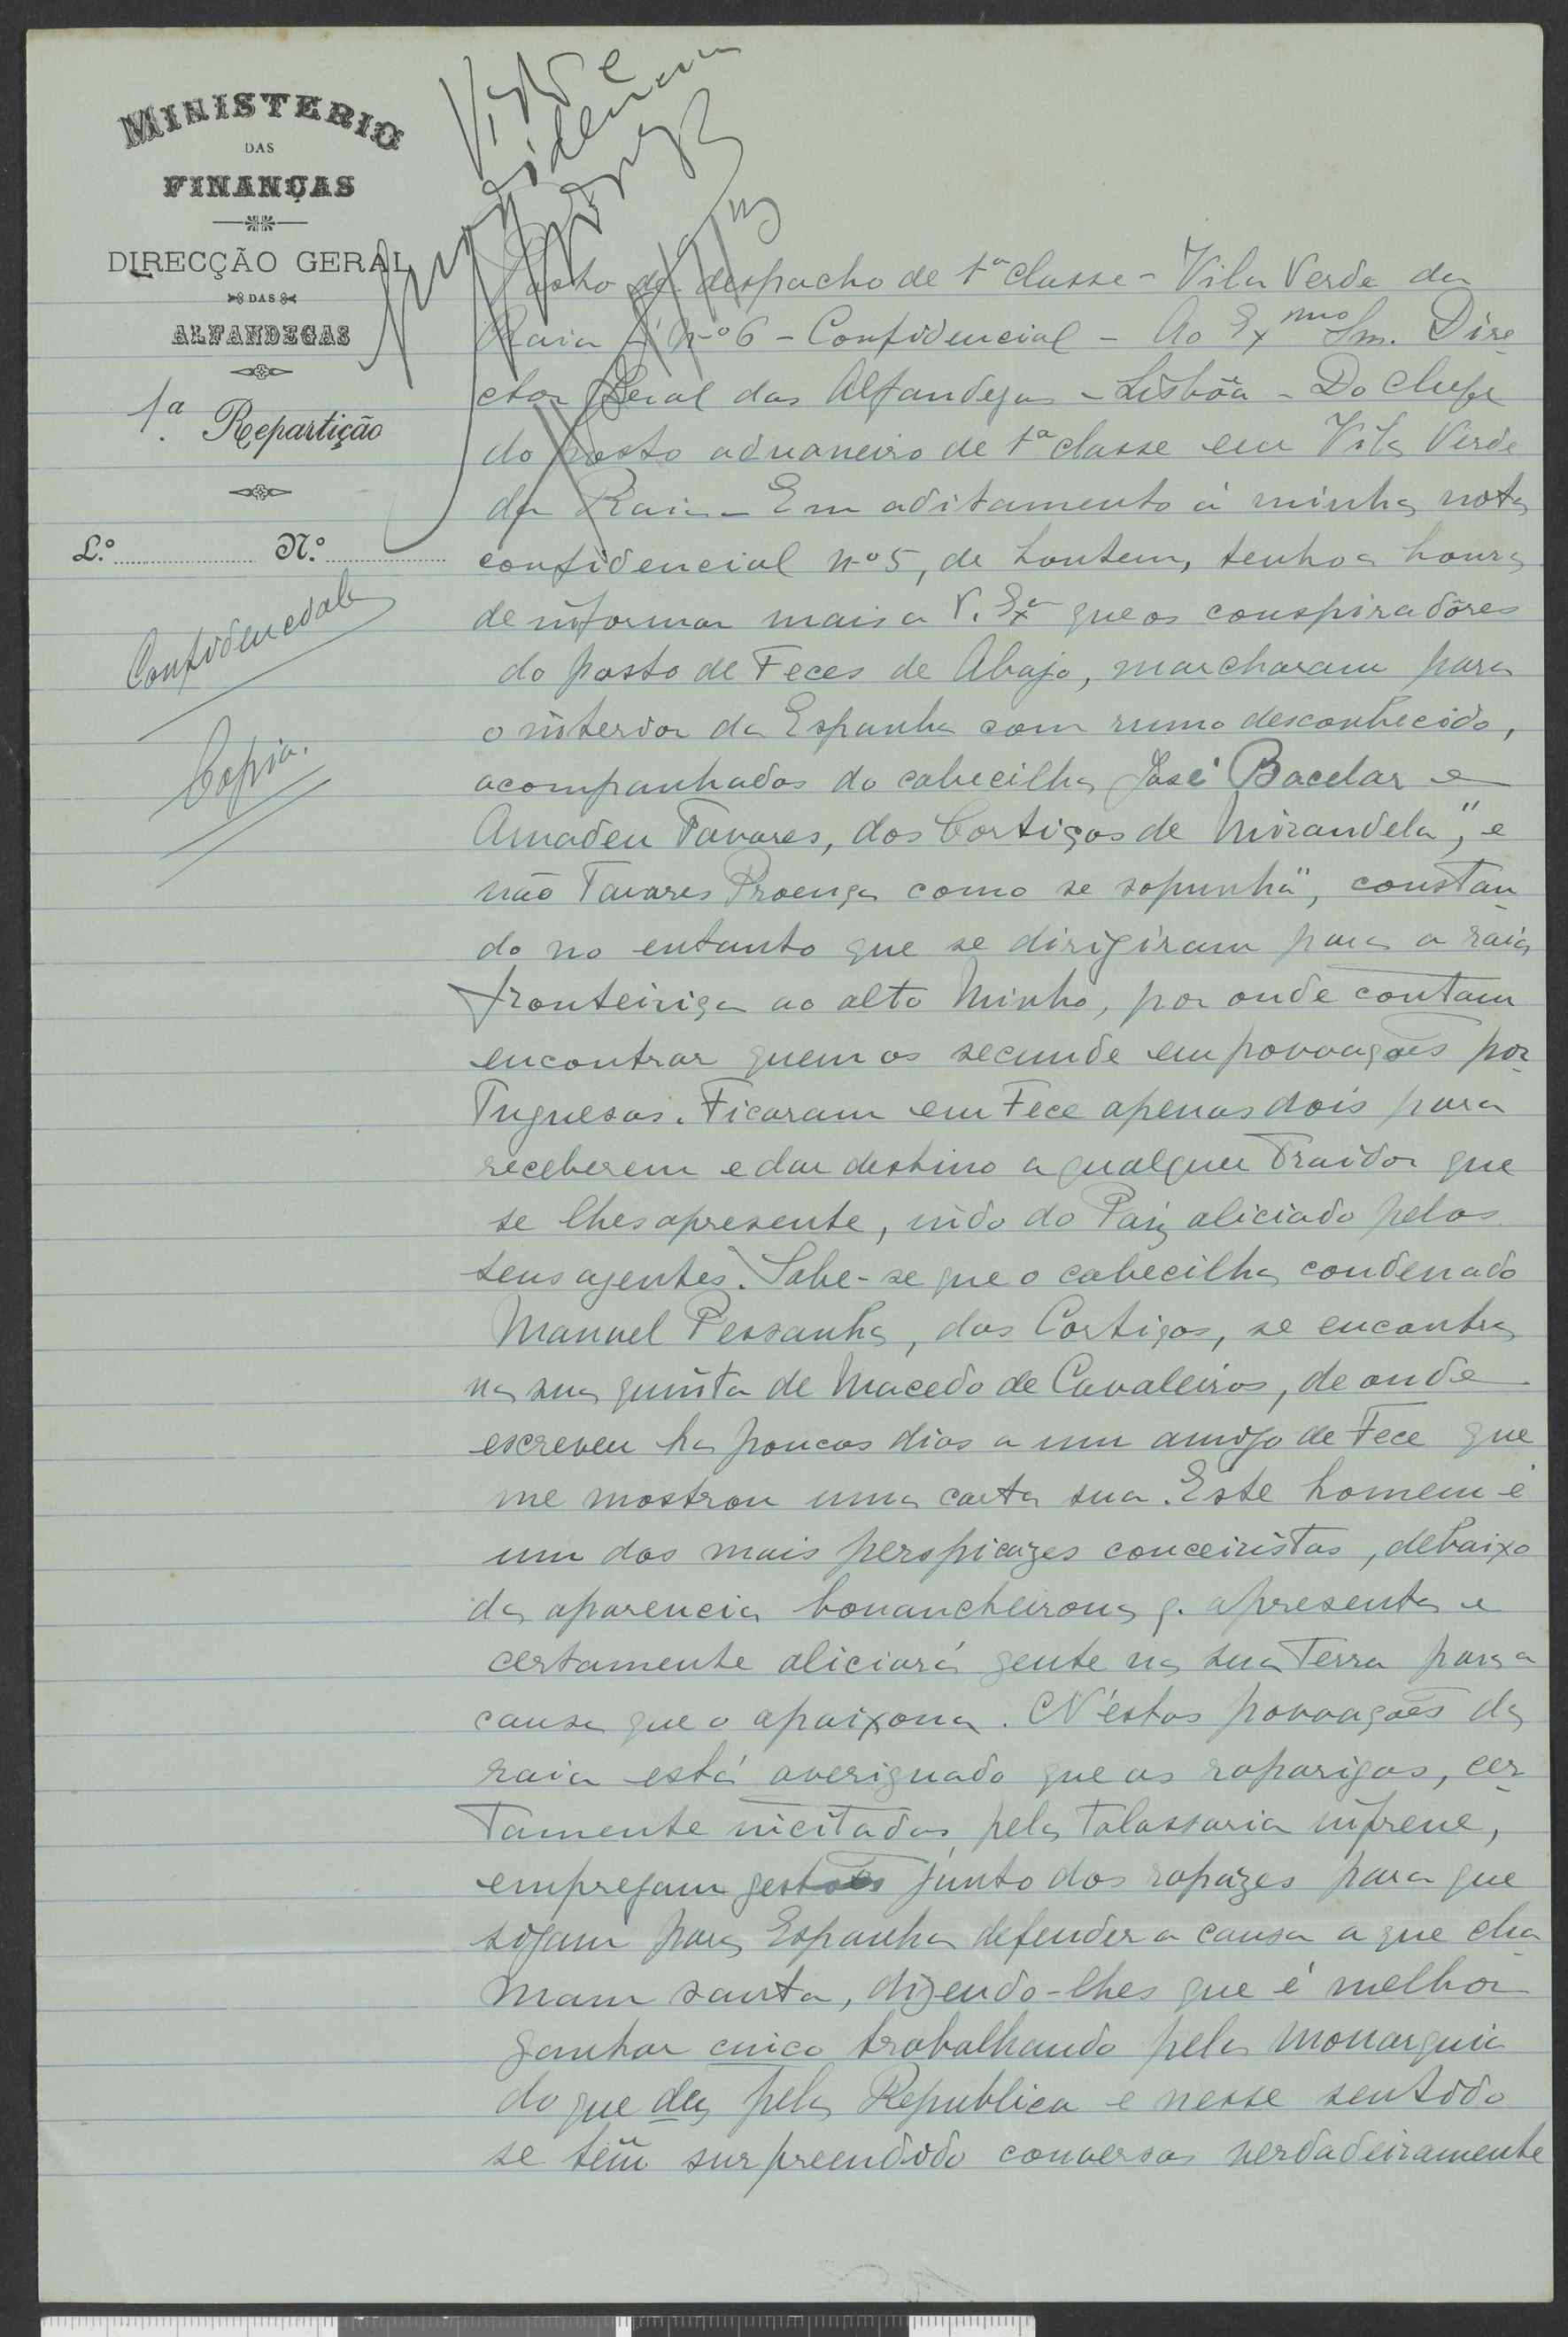 MINISTERIO
DAS
FINANÇAS
DIRECÇÃO GERAL
DAS
ALFANDEGAS
1ª Repartição
L.º N.º
Confidencial
Copia.
Visto e
Posto de despacho de 1ª classe - Vila Verde da
Raia - Nº 6 - Confidencial - Ao Exmo Snr. Dire
ctor Geral das Alfandegas - Lisbôa - Do Chefe
do posto aduaneiro de 1ª classe em Vila Verde
da Raia - Em aditamento á minha nota
confidencial nº 5, de hontem, tenho a honra
de informar mais a V. Exª que os conspiradôres
do posto de Feces de Abajo, marcharam para
o interior da Espanha com rumo desconhecido,
acompanhados do cabecilha José Bacelar e
Amadeu Tavares, dos Cortiços de Mirandela", e
não Tavares Proença como se sopunha", constan
do no entanto que se dirigiram para a raia
fronteiriça ao alto Minho, por onde contam
encontrar quem os secunde em povoações por
tuguesas. Ficaram em Fece apenas dois para
receberem e dar destino a qualquer traidor que
se lhes apresente, indo do Paiz aliciado pelos
seus agentes. Sabe-se que o cabecilha condenado
Manuel Pessanha, dos Cortiços, se encontra
na sua quinta de Macedo de Cavaleiros, de onde
escreveu ha poucos dias a um amigo de Fece que
me mostrou uma carta sua. Este homem é
um dos mais perspicazes conceiristas, debaixo
da aparencia bonancheirona q. apresenta e
certamente aliciará gente na sua terra para a
causa que o apaixona. N'estas povoações da
raia está averiguado que as raparigas, cer
tamente incitadas pela talassaria infrene,
empregam gestões junto dos rapazes para que
sigam para Espanha defender a causa a que cha
mam santa, dizendo-lhes que é melhor
ganhar cinco trabalhando pela monarquia
do que dez pela Republica e nesse sentido
se têm surpreendido conversas verdadeiramente